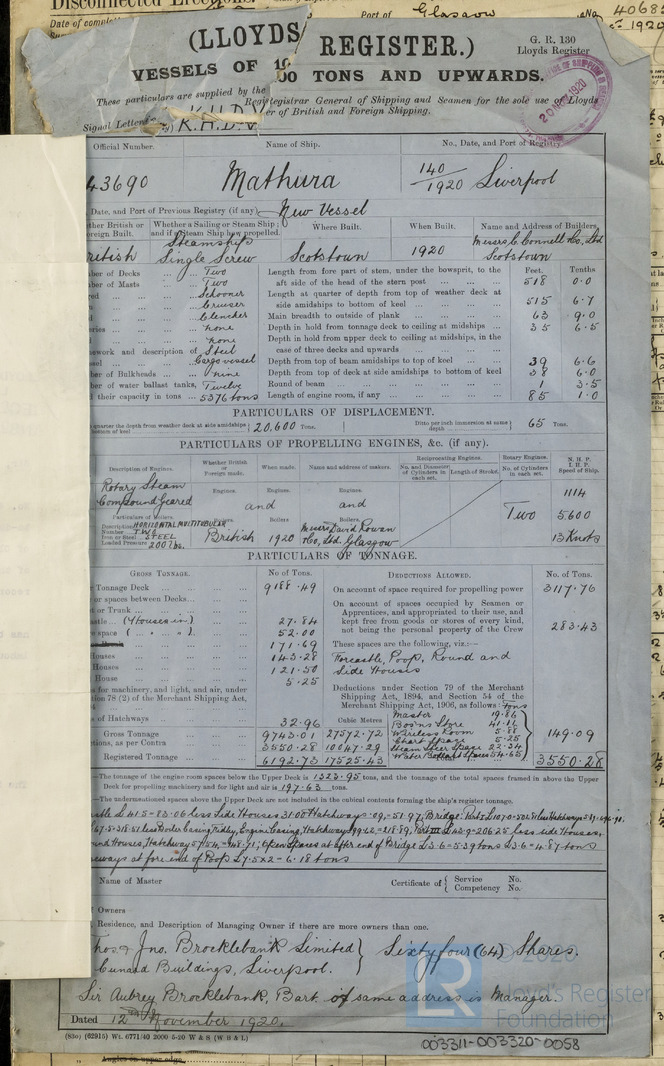 Disconnected Erections.
Date of
Port of Glasgow No. 4068
1920
(LLOYDS REGISTER.)
G. R. 130
Lloyds Register
VESSELS OF 100 TONS AND UPWARDS.
20 NOV 1920
These particulars are supplied by the Registrar General of Shipping and Seamen for the sole use of Lloyds
er of British and Foreign Shipping.
Signal Letters K.H.D.V
Official Number. Name of Ship. No., Date, and Port of Registry.
43690 Mathura 140/1920 Liverpool
Date, and Port of Previous Registry (if any) New Vessel
ther British or Foreign Built. Whether a Sailing or Steam Ship; and if Steam Ship how propelled. Where Built. When Built. Name and Address of Builders
British Steamship Single Screw Scotstoun 1920 Messrs C. Connell & Co., Ltd Scotstoun
ber of Decks Two
ber of Masts Two
ed Schooner
Cruiser
Clencher
eries none
none
ework and description of Steel
sel Cargo vessel
ber of Bulkheads nine
ber of water ballast tanks, Twelve
d their capacity in tons 5376 tons
Feet. Tenths
Length from fore part of stem, under the bowsprit, to the
aft side of the head of the stern post 518 0·0
Length at quarter of depth from top of weather deck at
side amidships to bottom of keel 515 6·7
Main breadth to outside of plank 63 9·0
Depth in hold from tonnage deck to ceiling at midships 35 6·5
Depth in hold from upper deck to ceiling at midships, in the
case of three decks and upwards
Depth from top of beam amidships to top of keel 39 6·6
Depth from top of deck at side amidships to bottom of keel 38 6·0
Round of beam 1 3·5
Length of engine room, if any 85 1·0
PARTICULARS OF DISPLACEMENT.
quarter the depth from weather deck at side amidships bottom of keel 20,600 Tons. Ditto per inch immersion at same depth 65 Tons.
PARTICULARS OF PROPELLING ENGINES, &c. (if any).
Description of Engines. Whether British Foreign made. When made. Name and address of makers. Reciprocating Engines. Rotary Engines. N.H.P. I.H.P. Speed of Ship.
No. and Diameter of Cylinders in each set. Length of Stroke. No. of Cylinders in each set.
Rotary Steam
Compound Geared
Engines. Engines. Engines.
and and
Particulars of Boilers.
Description HORIZONTAL MULTITUBULAR
Number TWO
Iron or Steel STEEL
Loaded Pressure 200 lbs.
Boilers Boilers.
British 1920 Messrs David Rowan & Co., Ltd. Glasgow
Two
1114
5600
13 Knots
PARTICULARS OF TONNAGE.
GROSS TONNAGE. No of Tons.
Tonnage Deck 9188·49
or spaces between Decks
t or Trunk
astle (Houses in) 27·84
e space ( „ „ ) 52·00
171·69
Houses 143·28
Houses 121·50
House 5·25
s for machinery, and light, and air, under
tion 78 (2) of the Merchant Shipping Act,
s of Hatchways 32·96
Cubic Metres
Gross Tonnage 9743·01 27572·72
tions, as per Contra 3550·28 10047·29
Registered Tonnage 6192·73 17525·43
DEDUCTIONS ALLOWED. No. of Tons.
On account of space required for propelling power 3117·76
On account of spaces occupied by Seamen or
Apprentices, and appropriated to their use, and
kept free from goods or stores of every kind,
not being the personal property of the Crew 283·43
These spaces are the following, viz:—
Forecastle, Poop, Round and
Side Houses
Deductions under Section 79 of the Merchant
Shipping Act, 1894, and Section 54 of the
Merchant Shipping Act, 1906, as follows: Tons
Master 19.86
Bos'ns Store 41.11
Wireless Room 5.88
Chart Space 5.25
Steam Steer Space 22.34
Water Ballast Spaces 54.65
149·09
3550·28
—The tonnage of the engine room spaces below the Upper Deck is 1323·95 tons, and the tonnage of the total spaces framed in above the Upper
Deck for propelling machinery and for light and air is 197·63 tons.
—The undermentioned spaces above the Upper Deck are not included in the cubical contents forming the ship's register tonnage.
less Side Houses 31·00 Hatchways
less Boiler Casing, Fidley, Engine Casing, Hatchways less side Houses,
und Houses, Hatchways open spaces at after end of Bridge
eways at fore end of Poop L7·5x2 = 6·18 tons
Name of Master Certificate of Service No.
Competency No.
Owners
Residence, and Description of Managing Owner if there are more owners than one.
Thos & Jno. Brocklebank Limited Sixty four (64) Shares.
Cunard Buildings, Liverpool.
Sir Aubrey Brocklebank, Bart. of same address is Manager.
Dated 12th November 1920.
(830) (62915) Wt. 6771/40 2000 5-20 W & S (W B & L)
LR © 2020
Lloyd's Register
Foundation
003311-003320-0058
Angles on upper edge